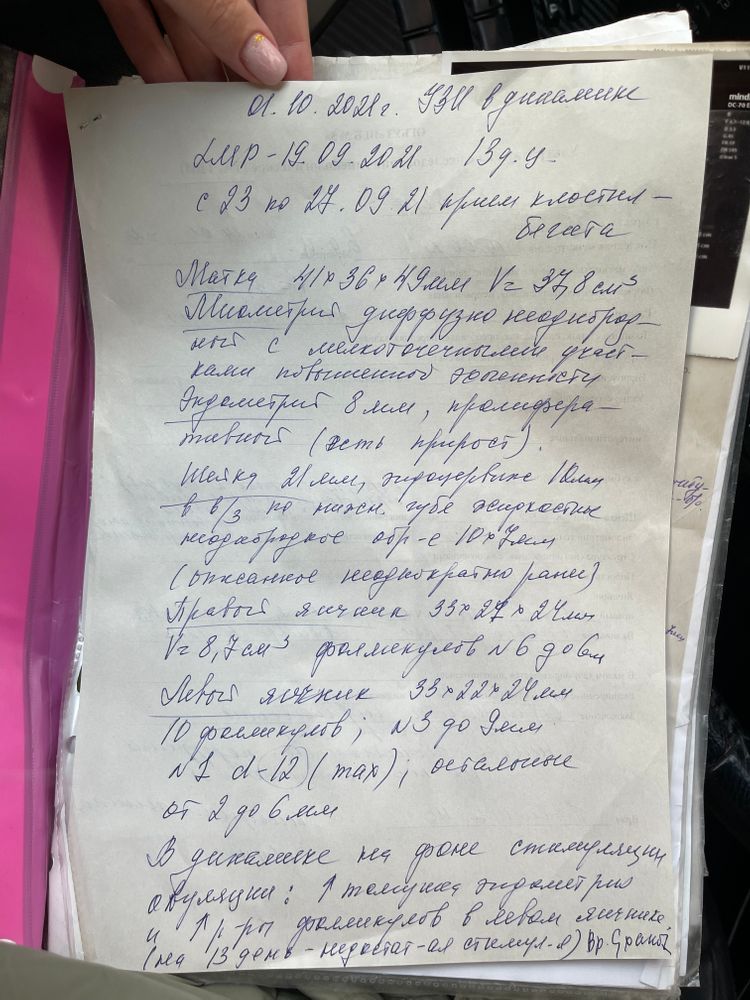 01.10.2021г. УЗИ в динамике
LMP - 19.09.2021 13 д.ц.
с 23 по 27.09 21 прием клостил-
бегита
Матка 41×36×49мм V= 37,8 см³
Миометрий диффузно неоднород-
ный с мелкоточечными участ-
ками повышенной эхогенности
Эндометрий 8 мм, пролифера-
тивный (есть прирост).
Шейка 21 мм, эндоцервикс 10мм
в в/3 по нижн. губе жидкостное
неоднородное обр-е 10×7мм
(описанное неоднократно ранее)
Правый яичник 33×27×24мм
V= 8,7см³ фолликулов N6 до 6м
Левый яичник 33×22×24мм
10 фолликулов; N3 до 9мм
N1 d-12 (max); остальные
от 2 до 6 мм
В динамике на фоне стимуляции
овуляции: ↑ толщина эндометрия
и ↑ р-ры фолликулов в левом яичнике
(на 13 день - недостат-ая стимул-я) Вр.
mind
DC-70